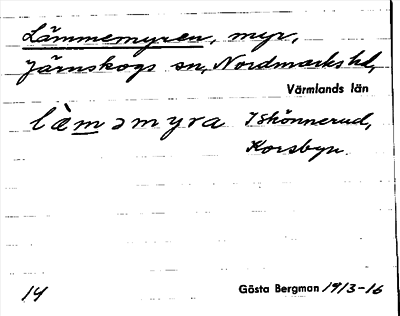 Lämmemyren, myr,
Järnskogs sn, Nordmarks hd,
Värmlands län
làməmyra I Skönnerud,
Korsbyn.
14 Gösta Bergman 1913-16